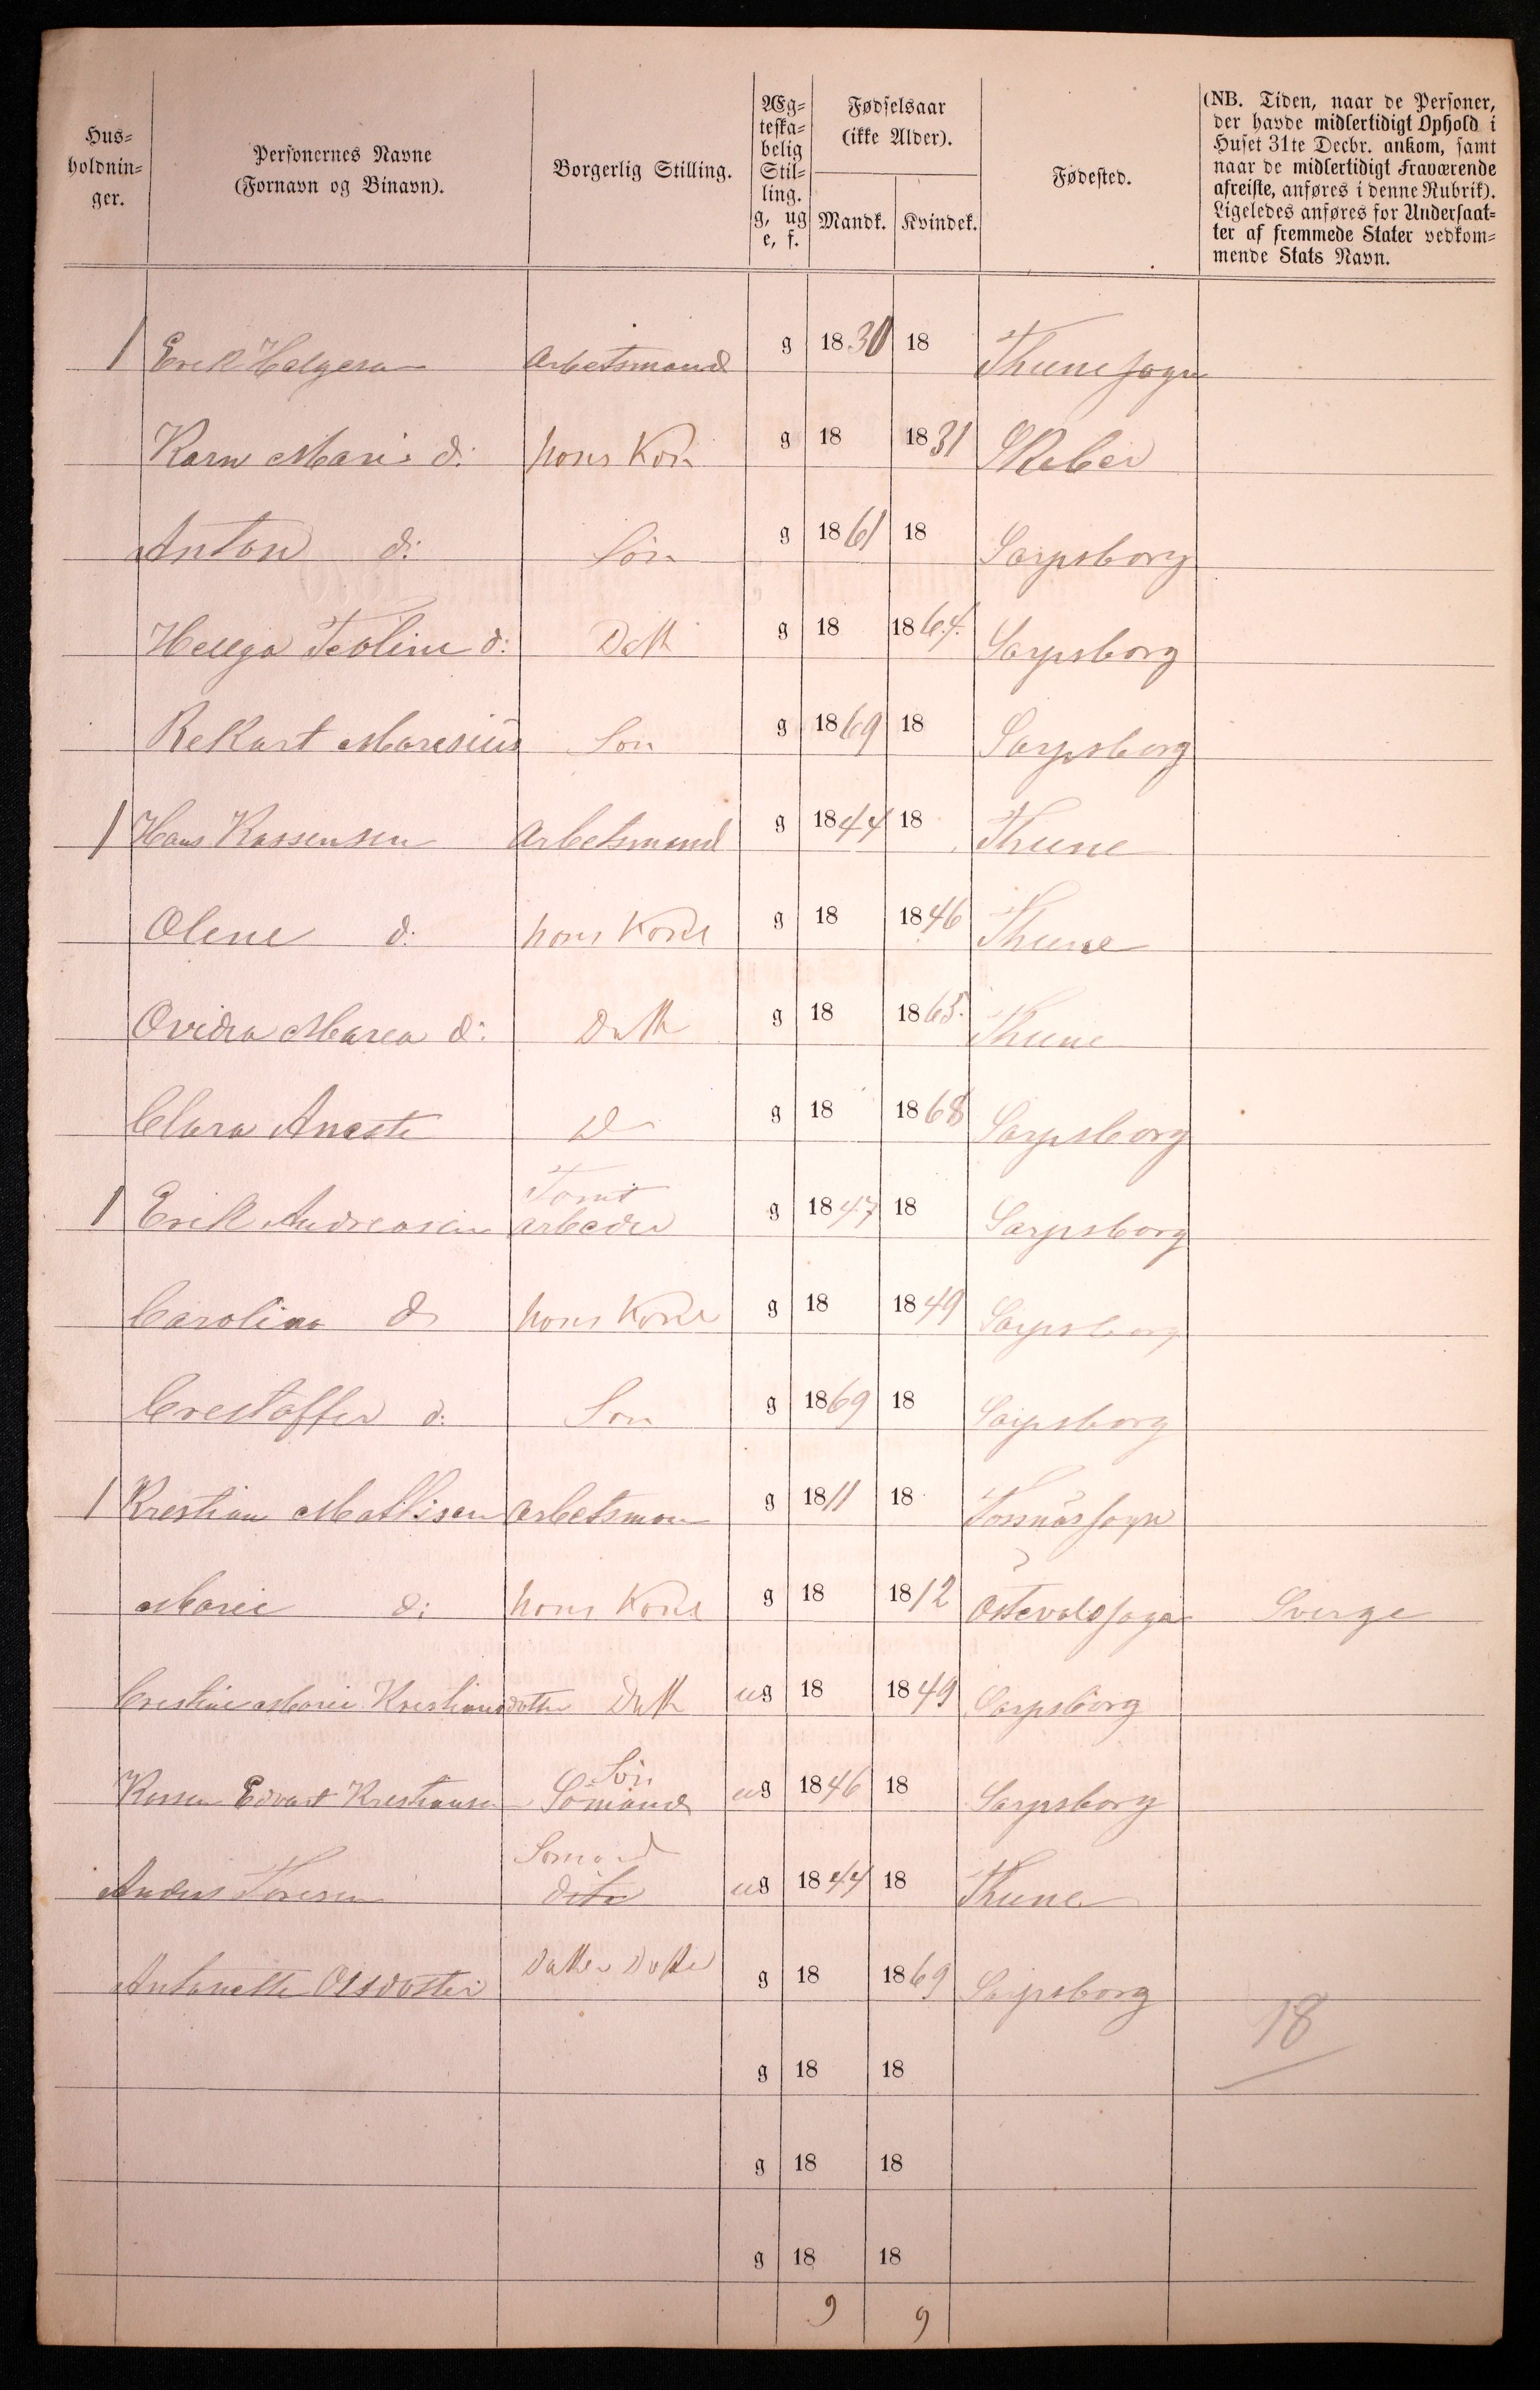 Hus=
holdnin=
ger.
Personernes Navne
(Fornavn og Binavn).
Borgerlig Stilling.
Æg=
teska=
belig
Stil=
ling.
g, ug
e, f.
Fødselsaar
(ikke Alder).
Mandk. Kvindek.
Fødested.
(NB. Tiden, naar de Personer,
der havde midlertidigt Ophold i
Huset 31te Decbr. ankom, samt
naar de midlertidigt fraværende
afreiste, anføres i denne Rubrik).
Ligeledes anføres for Undersaat=
ter af fremmede Stater vedkom=
mende Stats Navn.
1 Erik Helgesen Arbetsmand g 1830 18 Thune sogn
Karn Marie d: hans Kon g 18 1831 Skeber
Anton d: Sön g 1861 18 Sarpsborg
Hellga Teoline d: Datt g 18 1864. Sarpsborg
Rekart Maresius Son g 1869 18 Sarpsborg
1 Hans Kassensen Arbetsmand g 1844 18 Thune
Olene d: hans Kone g 18 1846 Thune
Ovidia Marea d: Datt g 18 1865. Thune
Clara Aneste D g 18 1868 Sarpsborg
Tomt
1 Erik Andreasen arbeder g 1847 18 Sarpsborg
Carolina d hans Kone g 18 1849 Sarpsborg
Crestoffer d: Son g 1869 18 Sarpsborg
1 Krestian Mattisen Arbetsman g 1811 18 Torsnäs sogn
Marie d: hans Kone g 18 1812 Östevalds sogn Sverge
Crestine Marie Krestiansdotter Datt ug 18 1849 Sarpsborg
Sön
Kasser Edvart Krestiansen Sömand ug 1846 18 Sarpsborg
Somand
Anders Toresen dito ug 1844 18 Thune
Antonette Olsdotter Datter Dotter g 18 1869 Sarpsborg
18
g 18 18
g 18 18
g 18 18
9 9